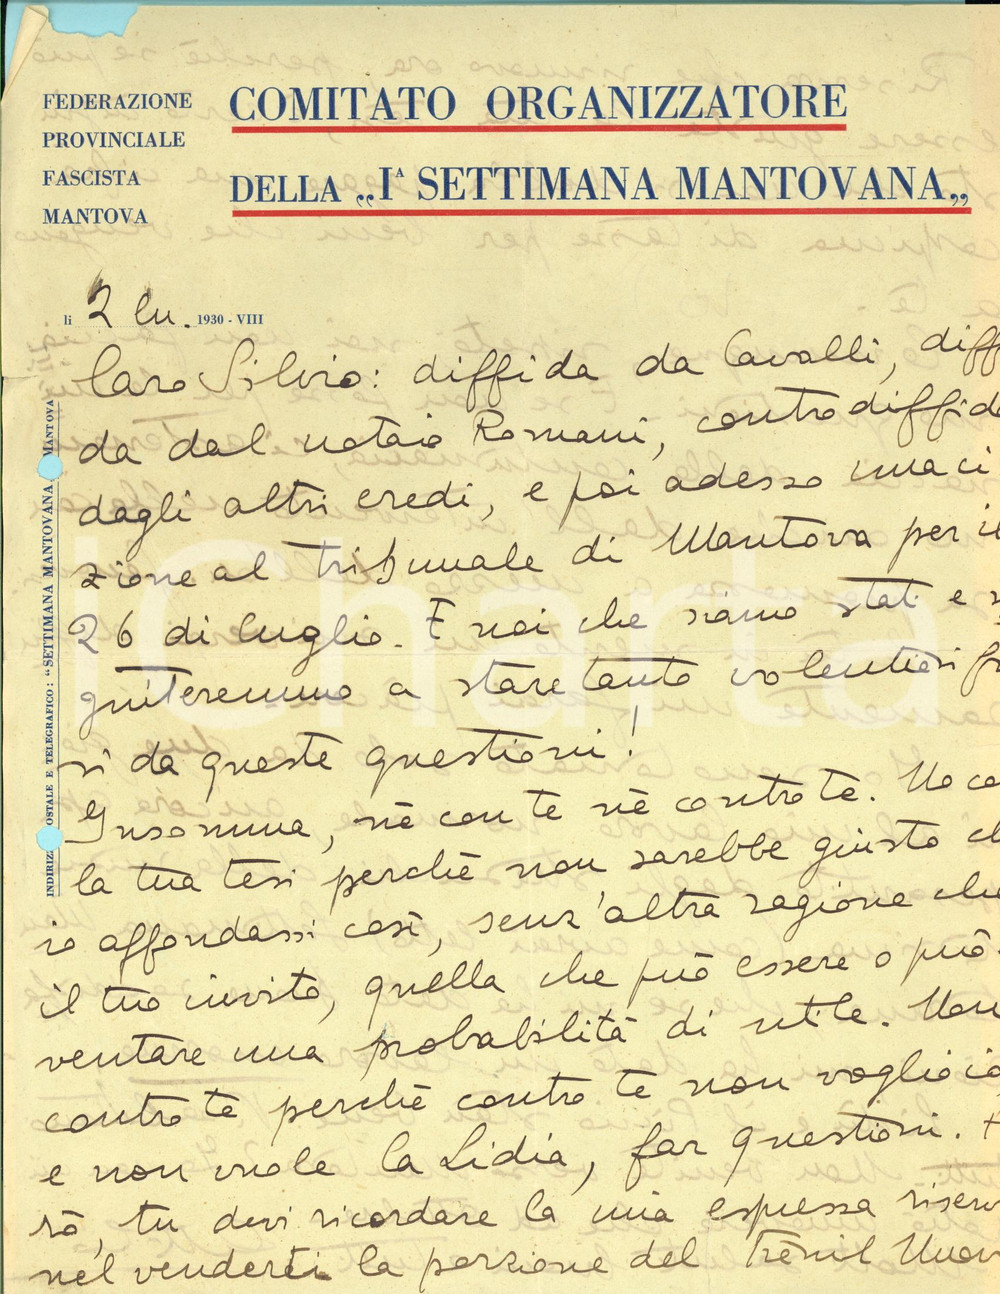 FEDERAZIONE
PROVINCIALE
FASCISTA
MANTOVA
COMITATO ORGANIZZATORE
DELLA „Iᴬ SETTIMANA MANTOVANA„
li 2 lu. 1930 - VIII
INDIRIZ OSTALE E TELEGRAFICO: "SETTIMANA MANTOVANA MANTOVA
Caro Silvio: diffida da Cavalli, diff
da dal notaio Romani, controdiffida
dagli altri eredi, e poi adesso una ci
zione al tribunale di Mantova per il
26 di luglio. E noi che siamo stati e s
guiteremmo a stare tanto volentieri fu
ri da queste questioni!
Insomma, nè con te nè contro te. No co
la tua tesi perchè non sarebbe giusto ch
io affondassi così, senz'altra ragione che
il tuo invito, quella che può essere o può
ventare una probabilità di utile. Non
contro te perchè contro te non voglio io
e non vuole la Lidia, far questioni.
rò, tu devi ricordare la mia espressa riserv
nel venderti la porzione del Fenil Nuov
iCharta